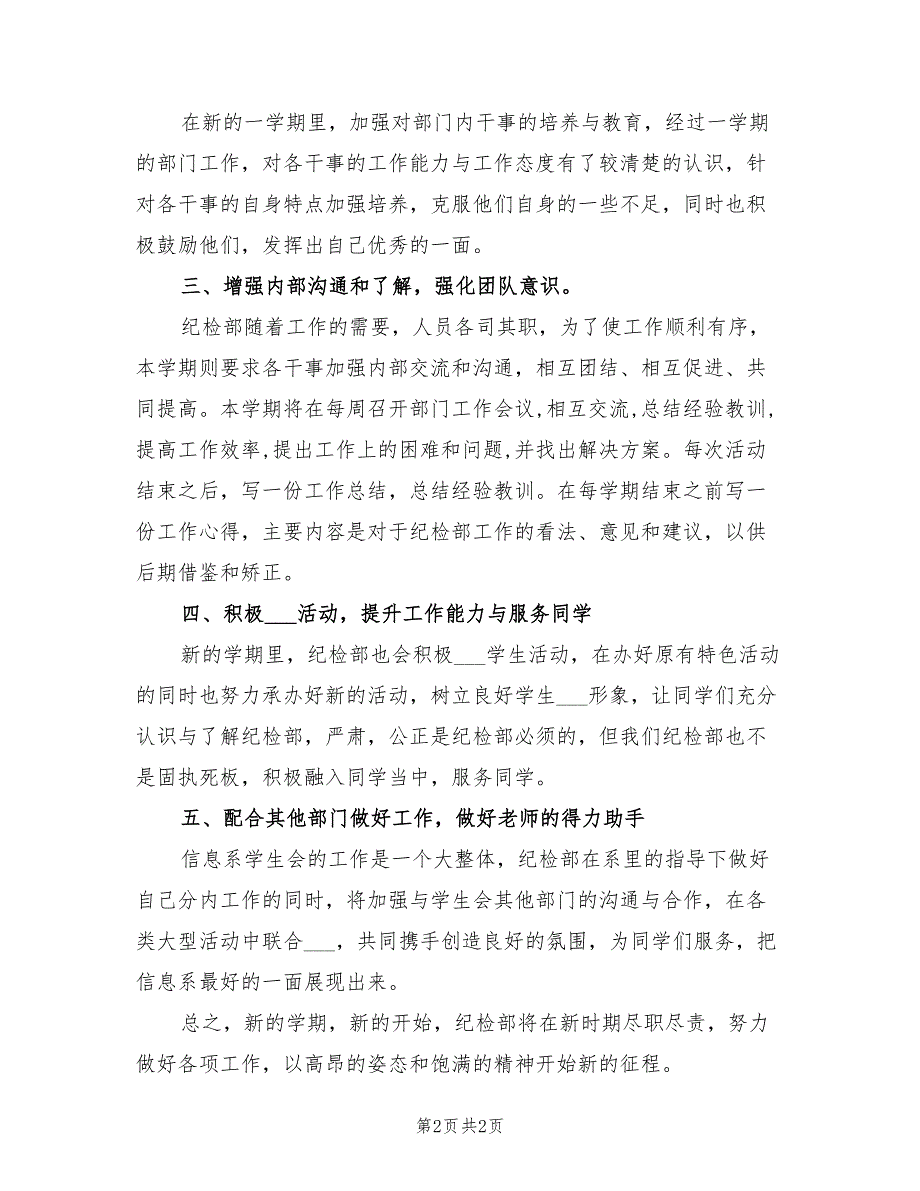 在新的一学期里，加强对部门内干事的培养与教育，经过一学期
的部门工作，对各干事的工作能力与工作态度有了较清楚的认识，针
对各干事的自身特点加强培养，克服他们自身的一些不足，同时也积
极鼓励他们，发挥出自己优秀的一面。
三、增强内部沟通和了解，强化团队意识。
纪检部随着工作的需要，人员各司其职，为了使工作顺利有序，
本学期则要求各干事加强内部交流和沟通，相互团结、相互促进、共
同提高。本学期将在每周召开部门工作会议,相互交流,总结经验教训,
提高工作效率,提出工作上的困难和问题,并找出解决方案。每次活动
结束之后，写一份工作总结，总结经验教训。在每学期结束之前写一
份工作心得，主要内容是对于纪检部工作的看法、意见和建议，以供
后期借鉴和矫正。
四、积极___活动，提升工作能力与服务同学
新的学期里，纪检部也会积极___学生活动，在办好原有特色活动
的同时也努力承办好新的活动，树立良好学生___形象，让同学们充分
认识与了解纪检部，严肃，公正是纪检部必须的，但我们纪检部也不
是固执死板，积极融入同学当中，服务同学。
五、配合其他部门做好工作，做好老师的得力助手
信息系学生会的工作是一个大整体，纪检部在系里的指导下做好
自己分内工作的同时，将加强与学生会其他部门的沟通与合作，在各
类大型活动中联合___，共同携手创造良好的氛围，为同学们服务，把
信息系最好的一面展现出来。
总之，新的学期，新的开始，纪检部将在新时期尽职尽责，努力
做好各项工作，以高昂的姿态和饱满的精神开始新的征程。
第2页 共2页